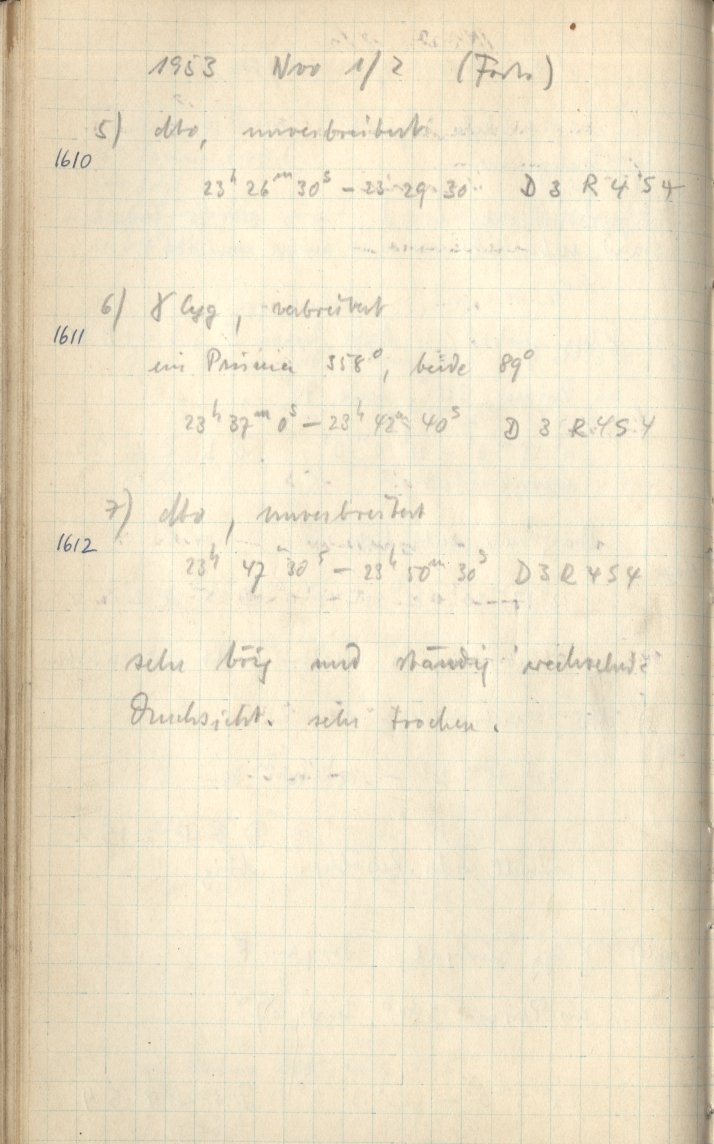 1953 Nov 1/2 (Forts.)
5) dto, unverbreitert
1610
23ʰ 26ᵐ 30ˢ – 23 29 30 D 3 R 4 S 4
6) γ Cyg, verbreitert
1611
ein Prisma 358°, beide 89°
23ʰ 37ᵐ 0ˢ – 23ʰ 42ᵐ 40ˢ D 3 R 4 S 4
7) dto, unverbreitert
1612
23ʰ 47ᵐ 30ˢ – 23ʰ 50ᵐ 30ˢ D 3 R 4 S 4
sehr böig und ständig wechselnde
Durchsicht. sehr trocken.